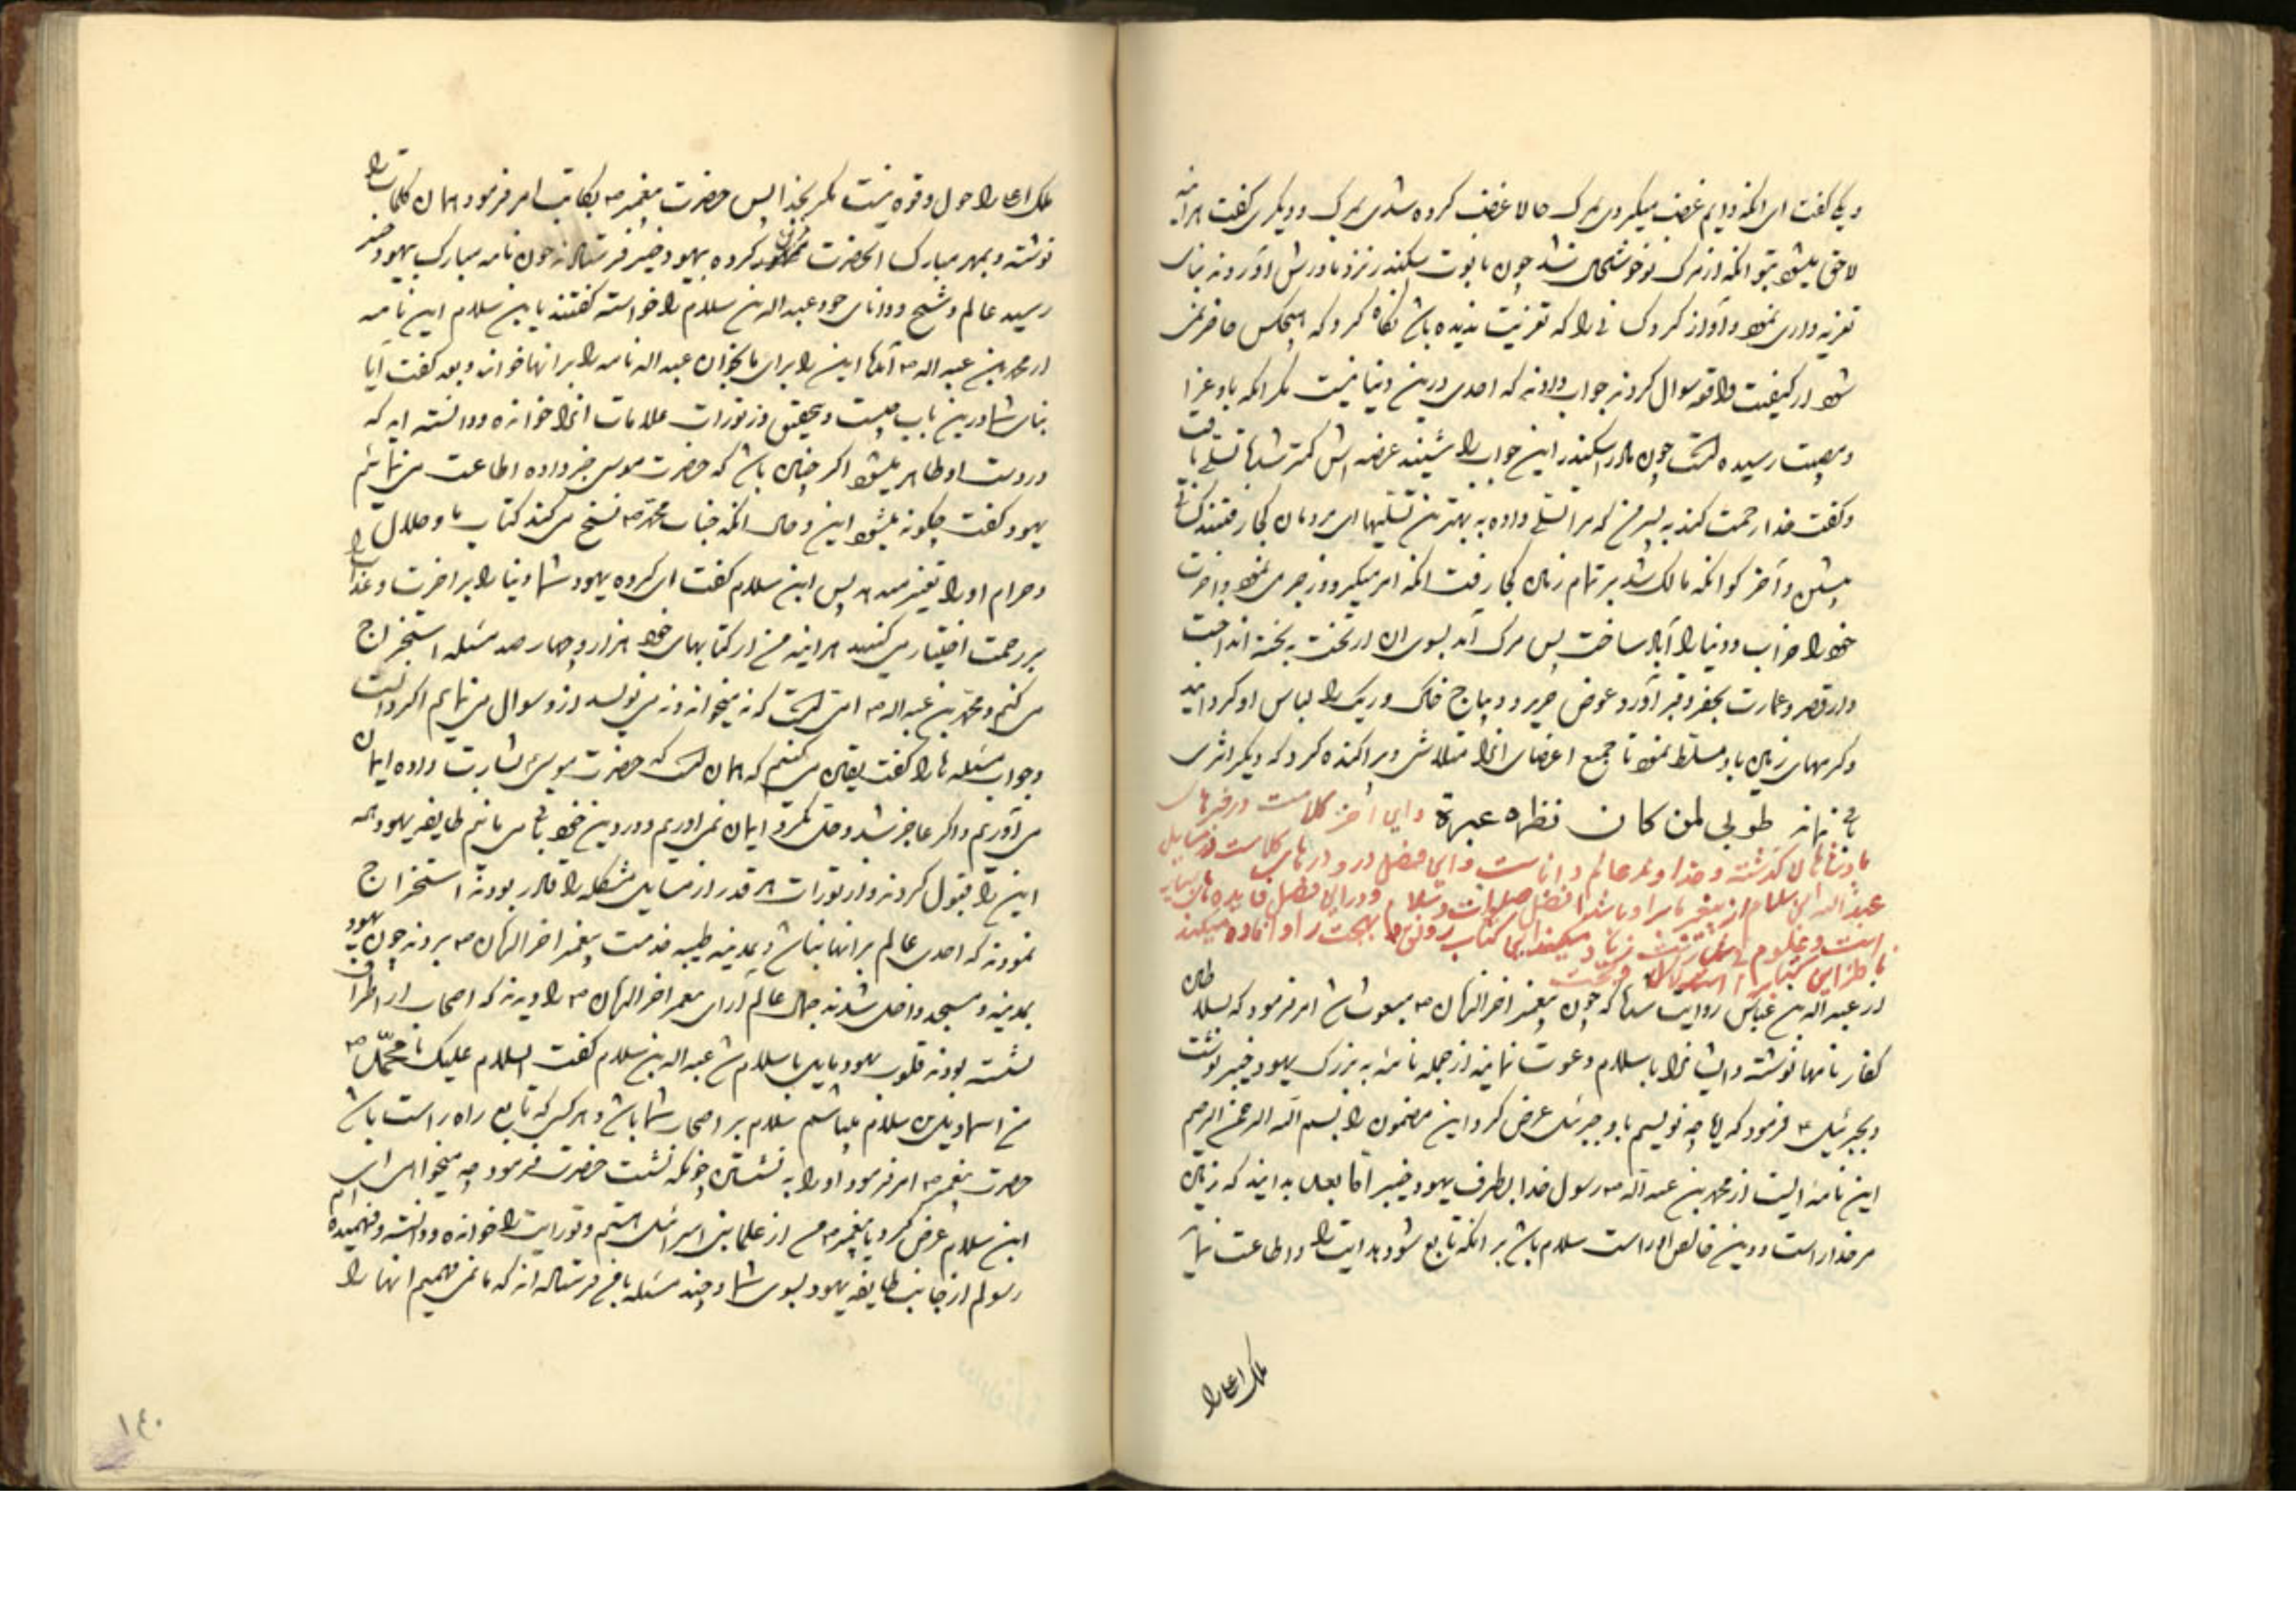 و یکی گفت ای آنکه دایم غضب میکردی بمرک حالا غضب کرده شدی بمرک و دیگری گفت هر آینه
لاحق میشود بتو آنکه از مرک تو خوشحال شد چون تابوت سکندر نزد مادرش آوردند بنای
تعزیه داری نمود و آواز کرد کسانی را که تعزیت ندیده باشد نگاه کرد که هیچکس حاضر نمی
شود از کیفیت واقعه سوال کردند جواب دادند که احدی درین دنیا نیست مگر آنکه باو عزا
و مصیبت رسیده است چون مادر اسکندر این جواب را شنید غصه اش کمتر شد تسلی یافت
و گفت خدا رحمت کند به پسر من که مرا تسلی داده به بهترین تسلیها ای مردمان کجا رفتند کسانی
پیشین و آخر کو آنکه مالک شد بر تمام زمین کجا رفت آنکه امر میکرد و زجر می نمود و آخرت
خود را خراب و دنیا را آباد ساخت پس مرک آمد بسوی او از تخت به تخته انداخت
و از قصر و عمارت بحفر و قبر آورد و عوض حریر و دیباج خاک و ریک را لباس او گردانید
و کرمهای زمین باو مسلط نمود تا جمیع اعضای آنرا متلاشی و پراکنده کرد که دیگر اثری
باقی نماند طوبی لمن کان نظره عبرة و این آخر کلامست در خبرهای
پادشاهان گذشته و خداوند عالم داناست و این فصل در و در بیان کلامست از مسایل
عبد الله ابن سلام از پیغمبر ما بر او باشد افضل صلوات و سلام و در این فصل فایده های بسیار
است
از عبد الله بن عباس روایت شده که چون پیغمبر آخر الزمان ص مبعوث شد امر فرمود که بسلاطین
کفار نامها نوشته و ایشانرا باسلام دعوت نمایند از جمله نامه به بزرک یهود خیبر نوشت
و بجبرئیل ع فرمود که یا اخی چه نویسم باو جبرئیل عرض کرد این مضمون را بسم الله الرحمن الرحیم
این نامه ایست از محمد بن عبد الله ص رسول خدا بطرف یهود خیبر اما بعد بدانید که زمین
مر خدا راست و دین خالص او راست سلام باد بر آنکه تابع شود هدایت را و اطاعت نماید
ملک اعلا را
ملک اعلا را حول و قوه نیست مگر بخدا پس حضرت پیغمبر ص بکاتب امر فرمود همان کلمات را
نوشته و بمهر مبارک آنحضرت ممهور کرده بیهود خیبر فرستادند چون نامه مبارک بیهود خیبر
رسید عالم و شیخ و دانای خود عبد الله بن سلام را خواسته گفتند یا بن سلام این نامه
از محمد بن عبد الله ص آمد این را برای ما بخوان عبد الله نامه را بر آنها خواند و بعد گفت آیا
بنای شما درین باب چیست و بتحقیق از تورات علامات آنرا خوانده و دانسته اید که
در دست او ظاهر میشود اگر چنین باشد که حضرت موسی خبر داده اطاعت می نمائیم
یهود گفت چگونه میشود این و حال آنکه جناب محمد ص نسخ می کند کتاب ما و حلال را
و حرام او را تغییر میدهد پس ابن سلام گفت ای گروه یهود شما دنیا را بر آخرت و عذاب را
بر رحمت اختیار می کنید هر آینه من از کتابهای خود هزار و چهار صد مسئله استخراج
می کنم و محمد بن عبد الله ص امی است که نه میخواند و نه می نویسد از و سوال می نمایم اگر دانست
و جواب مسئله ها را گفت یقین می کنیم که همان است که حضرت موسی بشارت داده ایمان
می آوریم و اگر عاجز شد و حل نکرد ایمان نمی آوریم و در دین خود باقی می مانیم طایفه یهود همه
این را قبول کردند و از تورات هر قدر از مسایل مشکله را قادر بودند استخراج
نمودند که احدی عالم بر آنها نباشد و بمدینه طیبه خدمت پیغمبر آخر الزمان ص بردند چون یهود
بمدینه و مسجد داخل شدند جمال عالم آرای پیغمبر آخر الزمان ص را دیدند که اصحاب در اطراف
نشسته بودند قلوب یهود مایل باسلام شد عبد الله بن سلام گفت السلام علیک یا محمد ص
من سلام میباشم سلام بر اصحاب شما باد و هر کس که تابع راه راست باشد
حضرت پیغمبر ص امر فرمود او را به نشستن چونکه نشست حضرت فرمود چه میخواهی ای
ابن سلام عرض کرد یا پیغمبر من از علمای بنی اسرائیل هستم و تورات را خوانده و دانسته و فهمیده ام
رسولم از جانب طایفه یهود بسوی شما و چند مسئله با من فرستاده اند که ما نمی فهمیم آنها را
۱۴۰